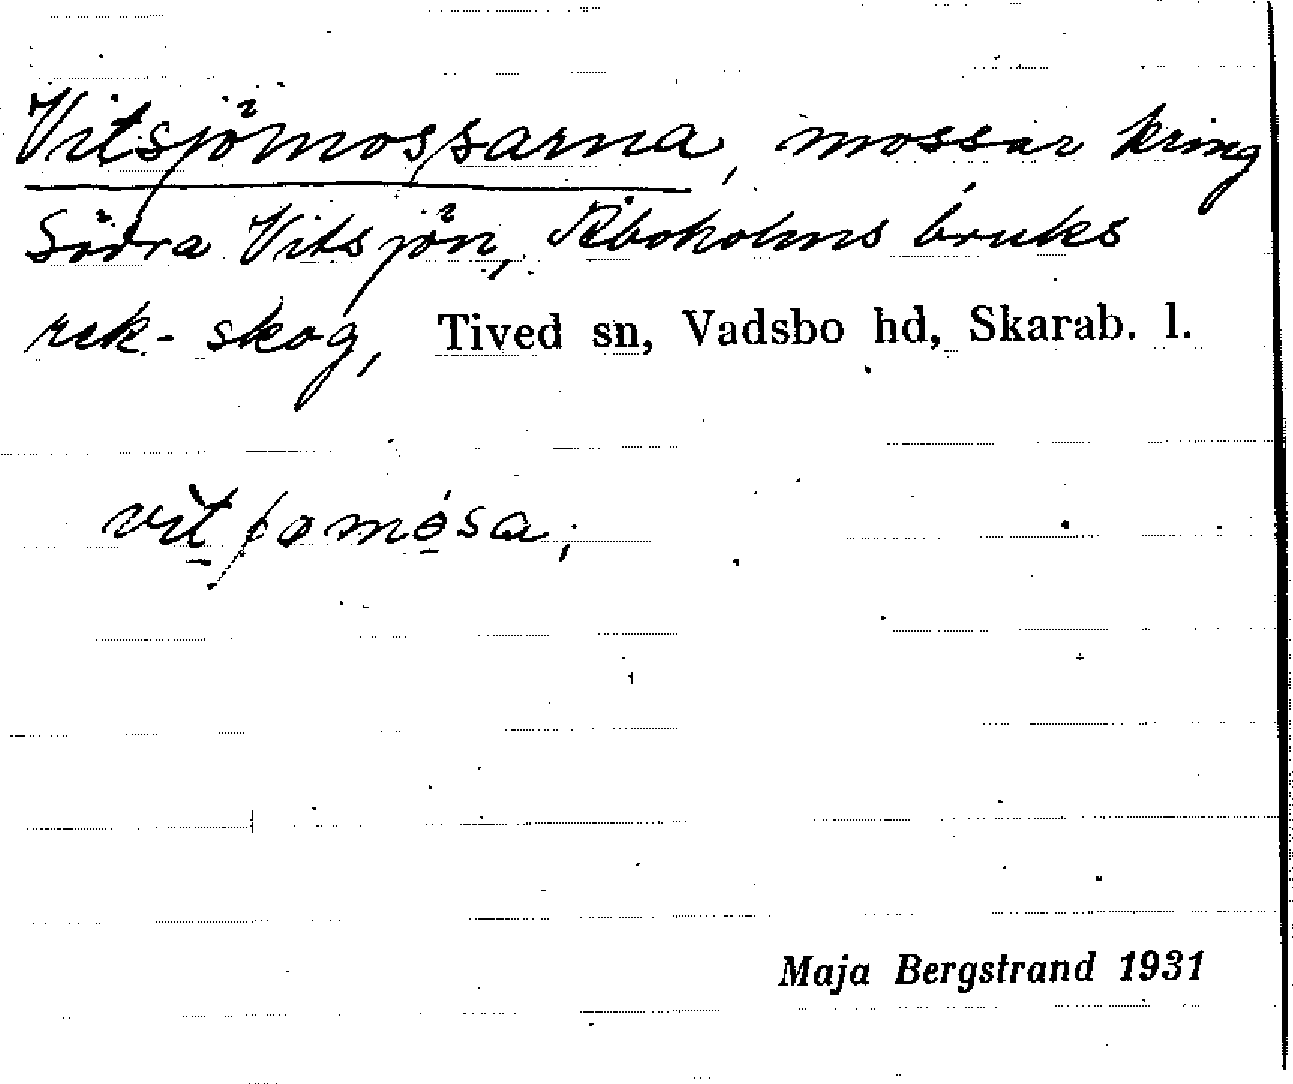 Vitsjömossarna, mossar kring
Södra Vitsjön, Åboholms bruks
rek-skog, Tived sn, Vadsbo hd, Skarab. l.
Maja Bergstrand 1931